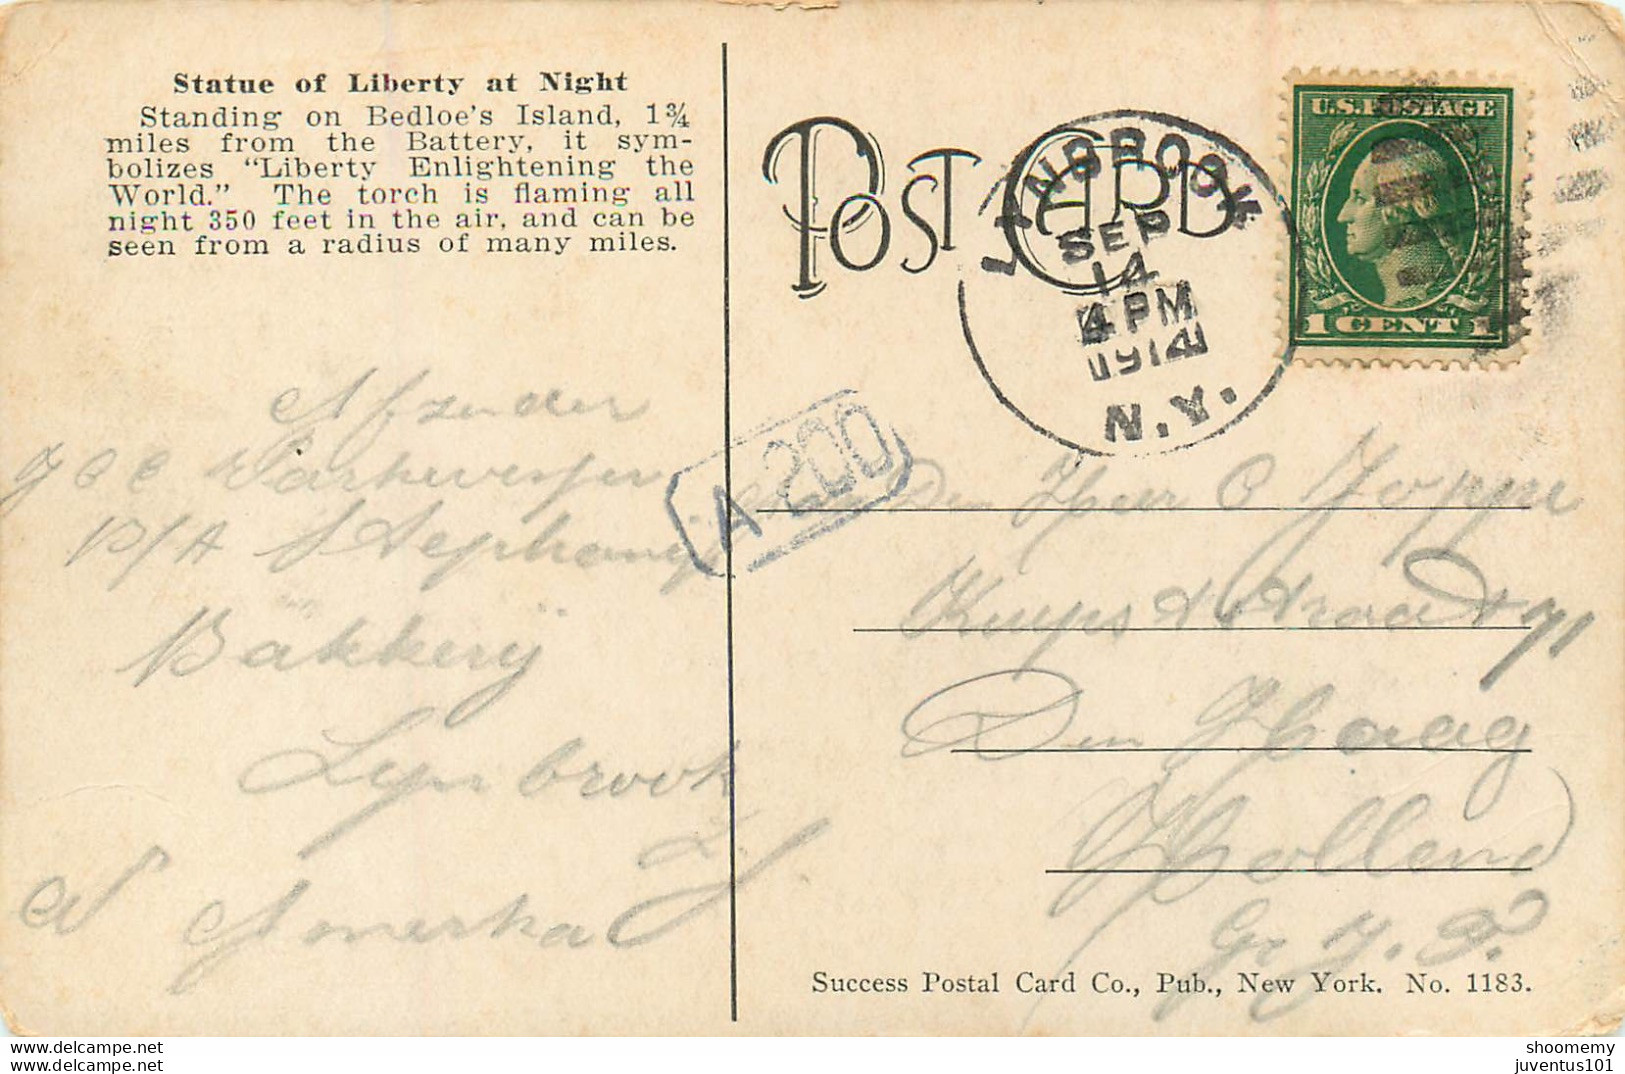 Statue of Liberty at Night
Standing on Bedloe's Island, 1¾
miles from the Battery, it sym-
bolizes "Liberty Enlightening the
World." The torch is flaming all
night 350 feet in the air, and can be
seen from a radius of many miles.
POST CARD
SEP
14
4 PM
1914
N.Y.
U.S. POSTAGE
1 CENT 1
A 200
Afzender
P/A Stephany
Bakkerij
Lynbrook
N Amerika
Den Heer C
Den Haag
Holland
Success Postal Card Co., Pub., New York. No. 1183.
www.delcampe.net
shoomemy
juventus101